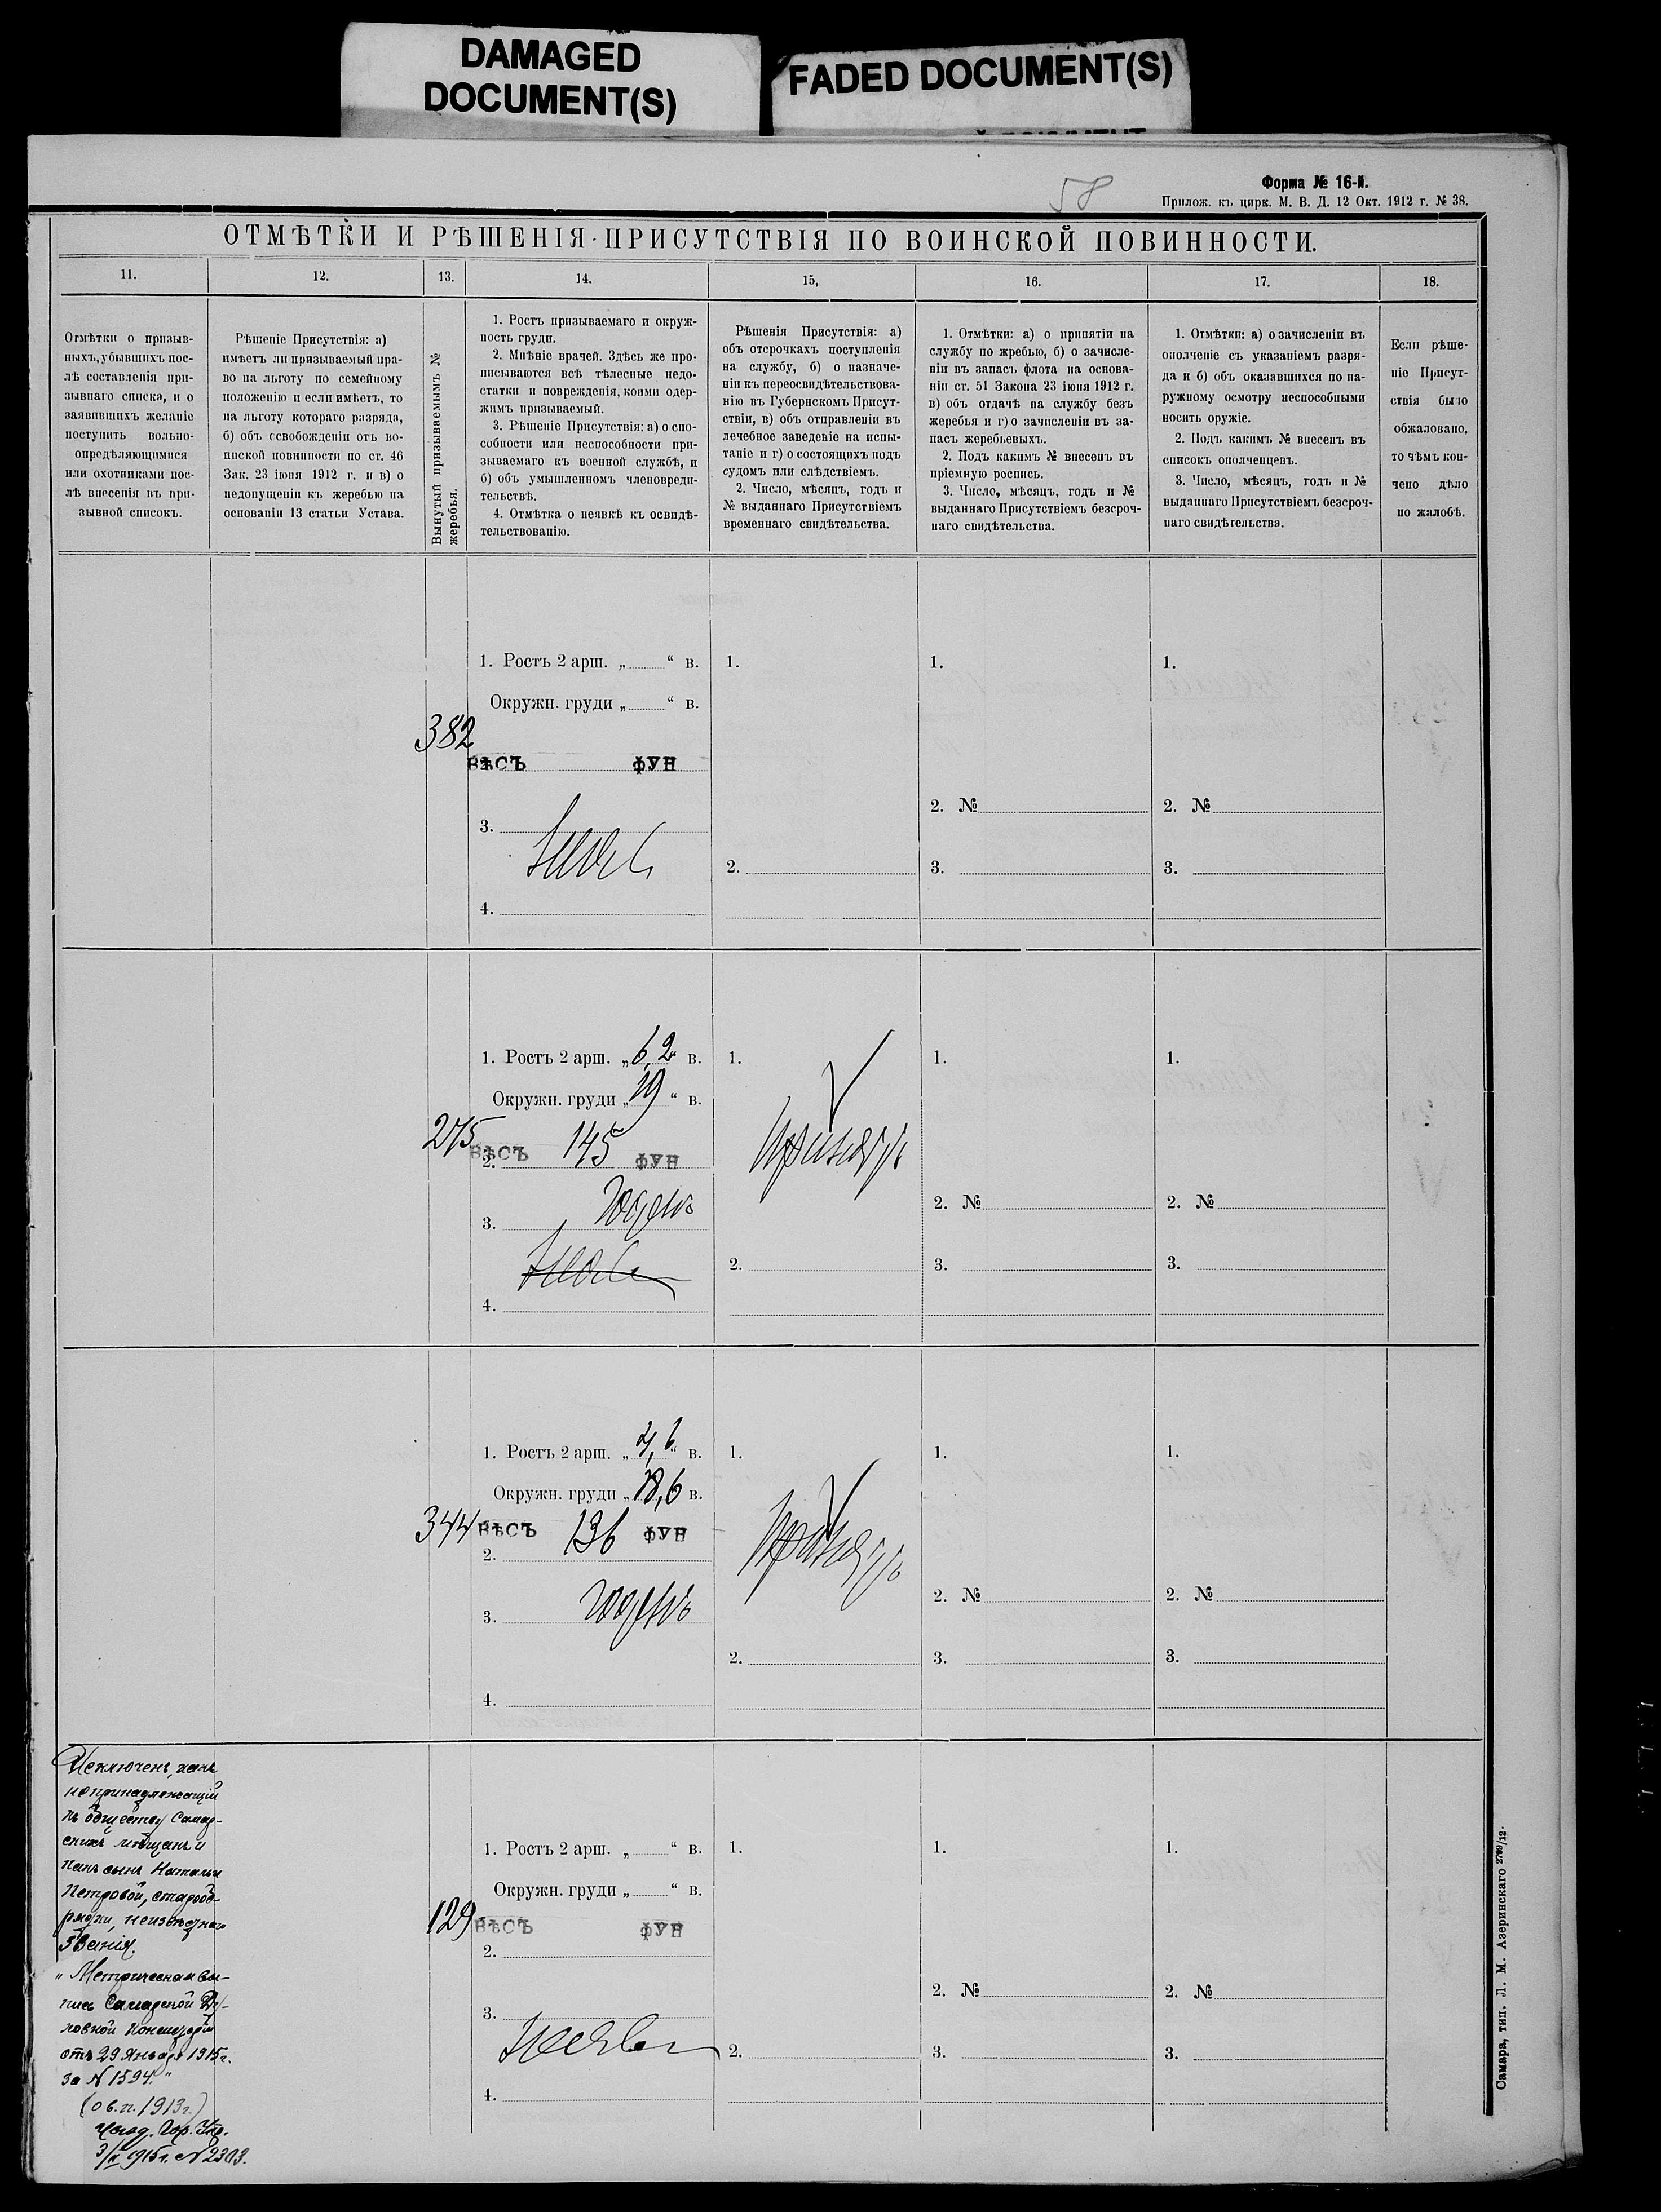 DAMAGED
DOCUMENT(S)
FADED DOCUMENT(S)
58
Форма № 16-й.
Прилож. къ цирк. М. В. Д. 12 Окт. 1912 г. № 38.
ОТМѢТКИ И РѢШЕНІЯ ПРИСУТСТВІЯ ПО ВОИНСКОЙ ПОВИННОСТИ.
11.
12.
13.
14.
15,
16.
17.
18.
Отмѣтки о призыв-
ныхъ, убывшихъ пос-
лѣ составленія при-
зывнаго списка, и о
заявившихъ желаніе
поступить вольно-
опредѣляющимися
или охотниками пос-
лѣ внесенія въ при-
зывной списокъ.
Рѣшеніе Присутствія: а)
имѣетъ ли призываемый пра-
во на льготу по семейному
положенію и если имѣетъ, то
на льготу котораго разряда,
б) объ освобожденіи отъ во-
инской повинности по ст. 46
Зак. 23 іюня 1912 г. и в) о
недопущеніи къ жеребью на
основаніи 13 статьи Устава.
Вынутый призываемымъ №
жеребья.
1. Ростъ призываемаго и окруж-
ность груди.
2. Мнѣніе врачей. Здѣсь же про-
писываются всѣ тѣлесные недо-
статки и поврежденія, коими одер-
жимъ призываемый.
3. Рѣшеніе Присутствія: а) о спо-
собности или неспособности при-
зываемаго къ военной службѣ, и
б) объ умышленномъ членовреди-
тельствѣ.
4. Отмѣтка о неявкѣ къ освидѣ-
тельствованію.
Рѣшенія Присутствія: а)
объ отсрочкахъ поступленія
на службу, б) о назначе-
ніи къ переосвидѣтельствова-
нію въ Губернскомъ Присут-
ствіи, в) объ отправленіи въ
лечебное заведеніе на испы-
таніе и г) о состоящихъ подъ
судомъ или слѣдствіемъ.
2. Число, мѣсяцъ, годъ и
№ выданнаго Присутствіемъ
временнаго свидѣтельства.
1. Отмѣтки: а) о принятіи на
службу по жребью, б) о зачисле-
ніи въ запасъ флота на основа-
ніи ст. 51 Закона 23 іюня 1912 г.
в) объ отдачѣ на службу безъ
жеребья и г) о зачисленіи въ за-
пасъ жеребьевыхъ.
2. Подъ какимъ № внесенъ въ
пріемную роспись.
3. Число, мѣсяцъ, годъ и №
выданнаго Присутствіемъ безсроч-
наго свидѣтельства.
1. Отмѣтки: а) о зачисленіи въ
ополченіе съ указаніемъ разря-
да и б) объ оказавшихся по на-
ружному осмотру неспособными
носить оружіе.
2. Подъ какимъ № внесенъ въ
списокъ ополченцевъ.
3. Число, мѣсяцъ, годъ и №
выданнаго Присутствіемъ безсроч-
наго свидѣтельства.
Если рѣше-
ніе Присут-
ствія было
обжаловано,
то чѣмъ кон-
чено дѣло
по жалобѣ.
1. Ростъ 2 арш. „ “ в.
Окружн. груди „ “ в.
382
ВѢСЪ ФУН
3.
4.
1.
2.
1.
2. №
3.
1.
2. №
3.
1. Ростъ 2 арш. „6,2“ в.
Окружн. груди „19“ в.
275
ВѢСЪ 145 ФУН
2.
3. Годенъ
4.
1.
Принятъ
2.
1.
2. №
3.
1.
2. №
3.
1. Ростъ 2 арш. „4,6“ в.
Окружн. груди „18,6 в.
344
ВѢСЪ 136 ФУН
2.
3. Годенъ
4.
1.
Принятъ
2.
1.
2. №
3.
1.
2. №
3.
Исключенъ, какъ
непринадлежащій
къ обществу Самар-
скихъ мѣщанъ и
какъ сынъ Натальи
Петровой, старооб-
рядки, неизвѣстнаго
званія.
„Метрическая вы-
пись Самарской Ду-
ховной Консисторіи
отъ 29 Января 1915 г.
за № 1594."
(о в. п. 1913 г.)
1915 г. № 2303.
1. Ростъ 2 арш. „ “ в.
Окружн. груди „ “ в.
129
ВѢСЪ ФУН
2.
3.
4.
1.
2.
1.
2. №
3.
1.
2. №
3.
Самара, тип. Л. М. Азеринскаго